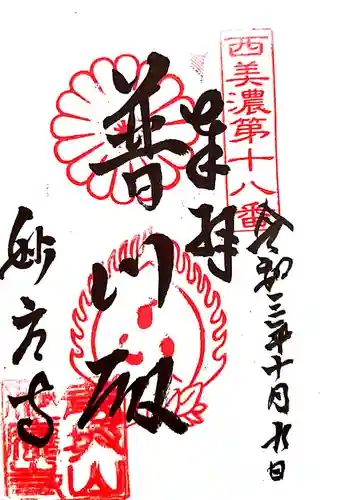 西美濃第十八番
奉拝
令和三年十月九日
普門殿
妙応寺